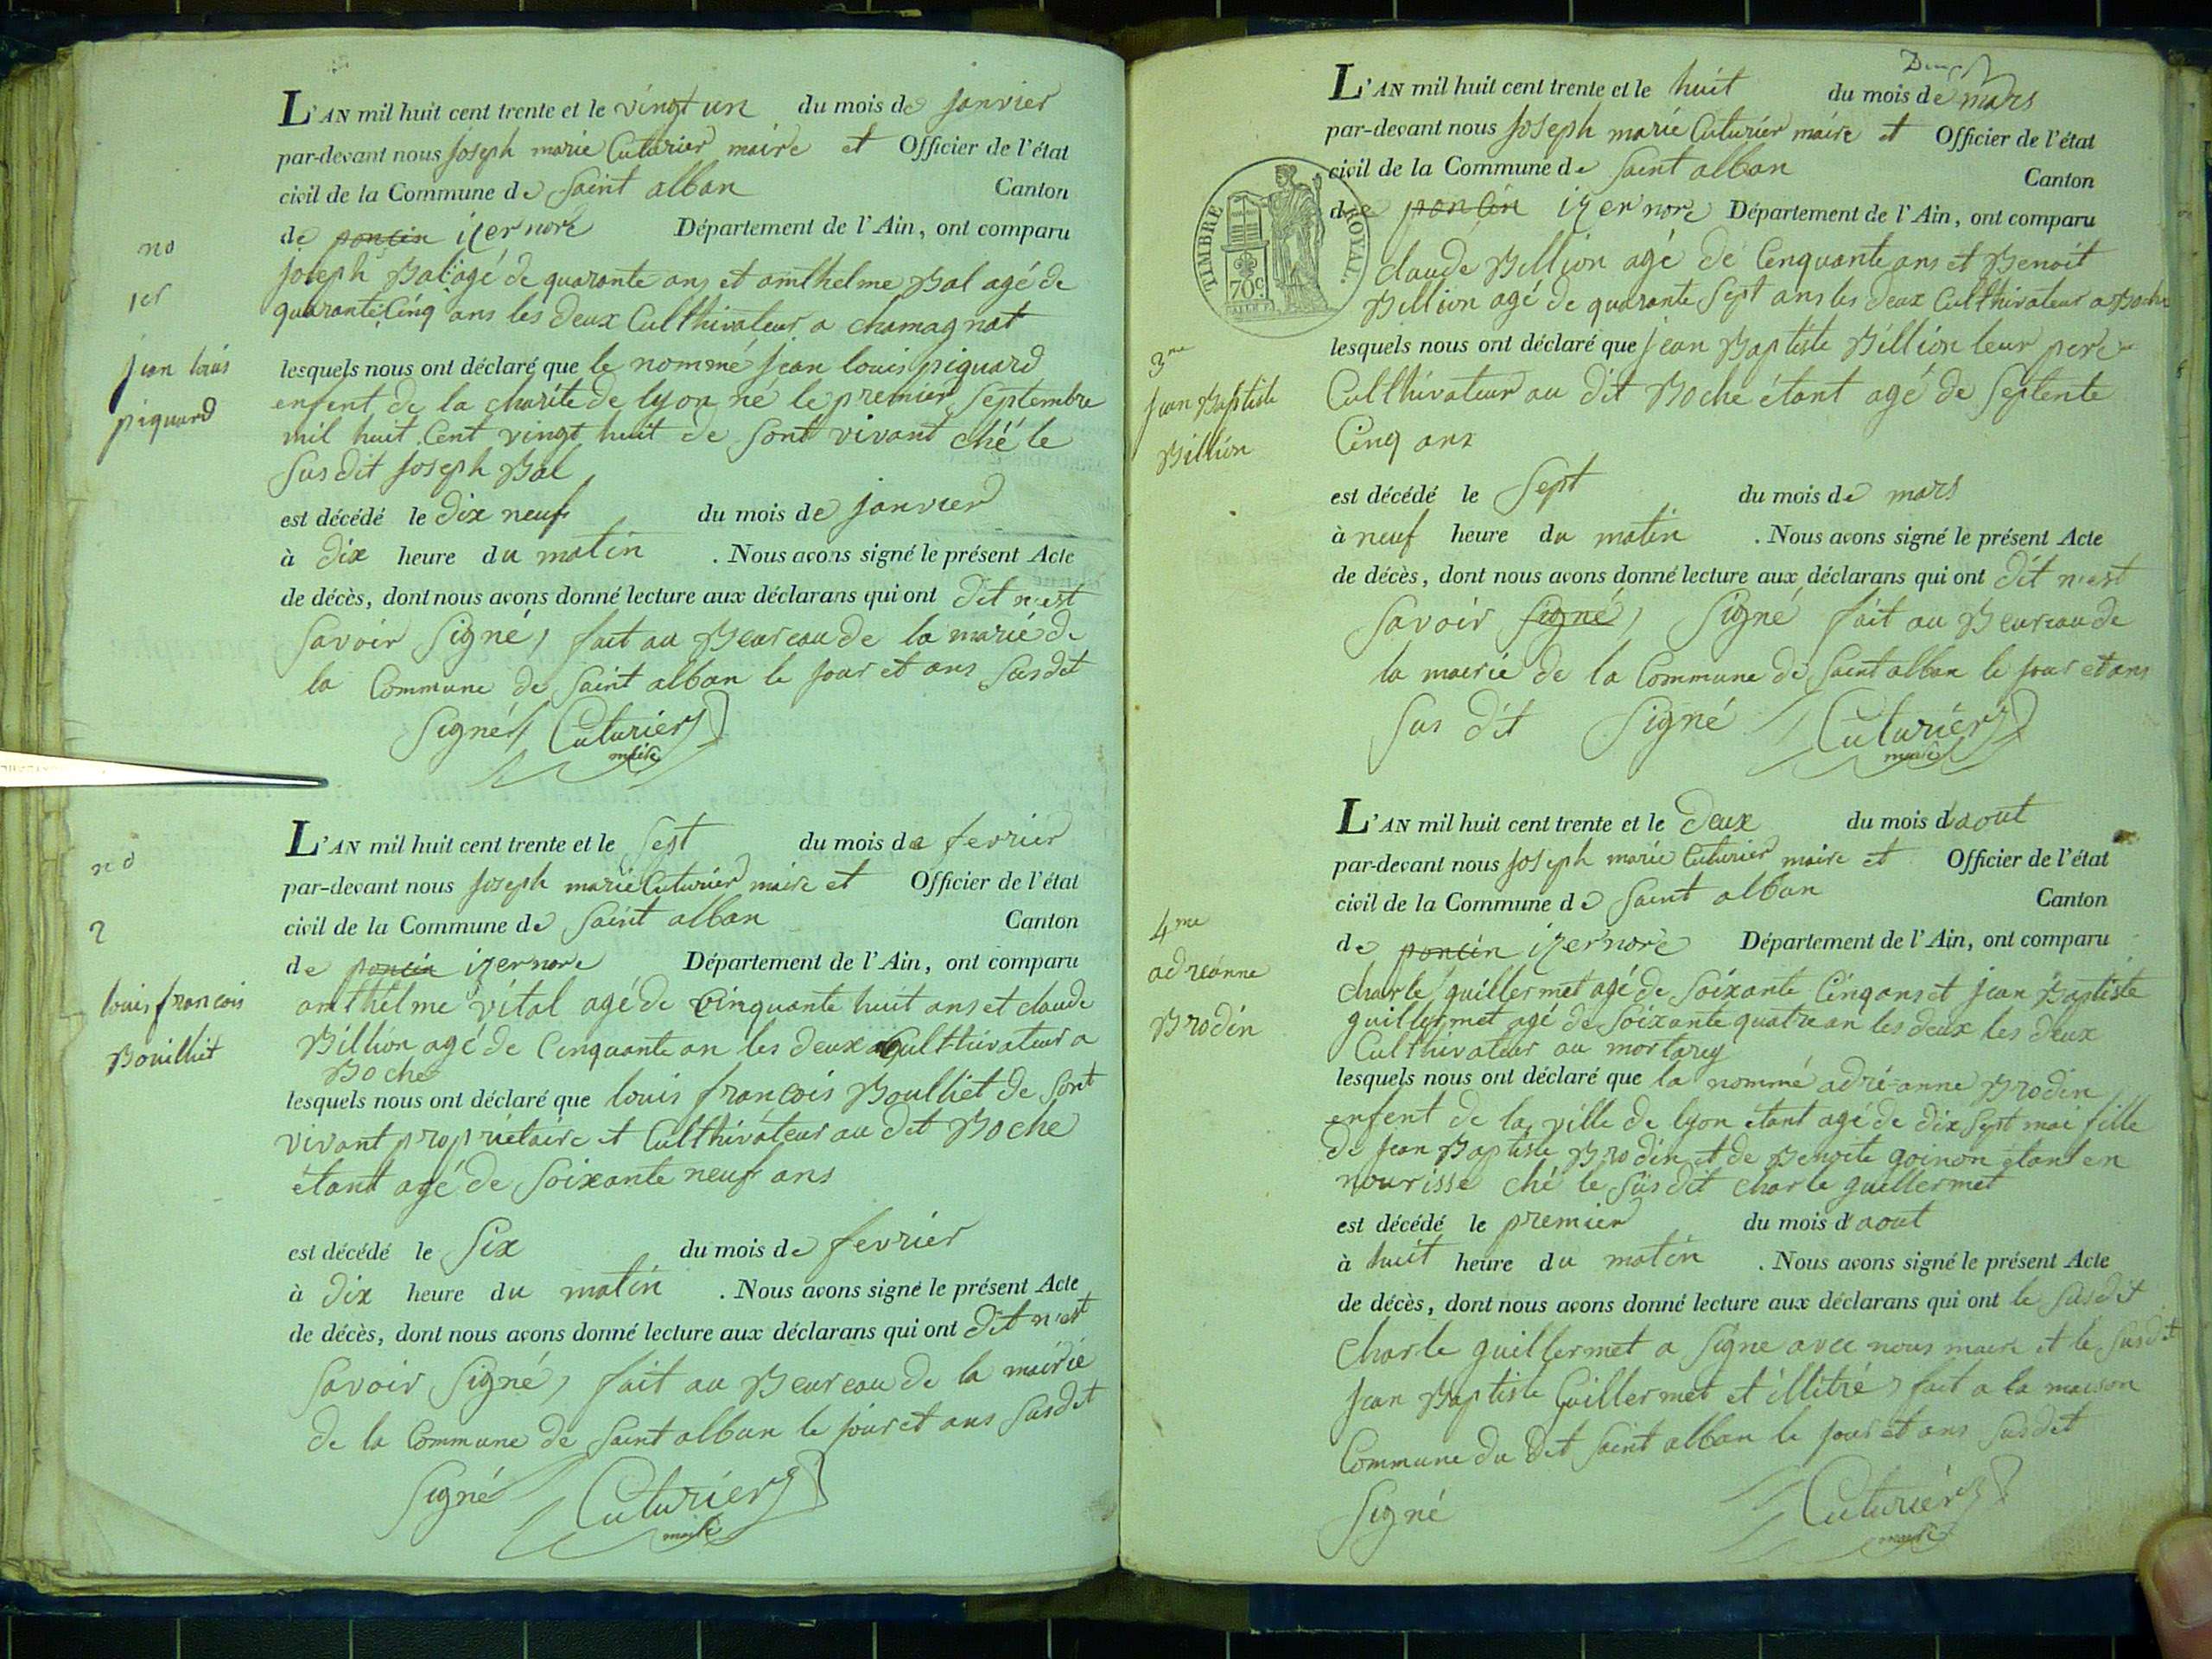 no
1er
jean louis
piquard
L'AN mil huit cent trente et le vingt un du mois de janvier
par-devant nous joseph marie Cuturier maire et Officier de l'état
civil de la Commune de Saint alban Canton
de poncin izernore Département de l'Ain, ont comparu
joseph Bal agé de quarante ans et amthelme Bal agé de
quarante Cinq ans les deux Culthivateur a chamagnat
lesquels nous ont déclaré que le nommé jean louis piquard
enfent de la charité de lyon né le premier Septembre
mil huit Cent vingt huit de Sont vivant ché le
Susdit joseph Bal
est décédé le dix neuf du mois de janvier
à dix heure du matin . Nous avons signé le présent Acte
de décès, dont nous avons donné lecture aux déclarans qui ont dit n'est
Savoir Signé, fait au Beureau de la marié de
la Commune de Saint alban le jour et ans Susdit
Signé Cuturier
maire
no
2
louis francois
Bouilliet
L'AN mil huit cent trente et le Sept du mois de fevrier
par-devant nous joseph marie Cuturier maire et Officier de l'état
civil de la Commune de Saint alban Canton
de poncin izernore Département de l'Ain, ont comparu
amthélme vital agé de Cinquante huit ans et claude
Billion agé de Cinquante an les deux Culthivateur a
Boche
lesquels nous ont déclaré que louis francois Boulliet de Sont
vivant propriétaire et Culthivateur au dit Boche
étant agé de Soixante neuf ans
est décédé le Six du mois de fevriér
à dix heure du matin . Nous avons signé le présent Acte
de décès, dont nous avons donné lecture aux déclarans qui ont dit n'est
Savoir Signé, fait au Beureau de la mairie
de la Commune de Saint alban le jour et ans Susdit
Signé Cuturier
maire
TIMBRE ROYAL.
70c
3me
jean Baptiste
Billion
L'AN mil huit cent trente et le huit du mois de mars
par-devant nous joseph marie Cuturier maire et Officier de l'état
civil de la Commune de Saint alban Canton
de poncin izernore Département de l'Ain, ont comparu
claude Billion agé de Cenquante ans et Benoit
Billion agé de quarante Sept ans les deux Culthivateur a Boche
lesquels nous ont déclaré que jean Baptiste Billion leur pere
Culthivateur au dit Boche étant agé de Septente
Cinq ans
est décédé le Sept du mois de mars
à neuf heure du matin . Nous avons signé le présent Acte
de décès, dont nous avons donné lecture aux déclarans qui ont dit n'est
Savoir Signé, Signé fait au Beureau de
la maerie de la Commune de Saint alban le jour et ans
Sus dit Signé Cuturier
maire
4me
adreanne
Brodin
L'AN mil huit cent trente et le deux du mois d'aout
par-devant nous joseph marie Cuturier maire et Officier de l'état
civil de la Commune de Saint alban Canton
de poncin izernore Département de l'Ain, ont comparu
charle guillermet agé de Soixante Cinq ans et jean Baptiste
guillermet agé de Soixante quatre an les deux les deux
Culthivateur au mortarey
lesquels nous ont déclaré que la nommé adré-anne Brodin
enfent de la ville de lyon étant agé de dix Sept moi fille
de jean Baptiste Brodin et de Benoite goinon étant en
nourisse ché le Susdit charle guillermet
est décédé le premier du mois d'aout
à huit heure du matin . Nous avons signé le présent Acte
de décès, dont nous avons donné lecture aux déclarans qui ont le Susdit
Charle guillermet a Signe avec nous maire et le Susdit
jean Baptiste Guillermet et illitré, fait a la maison
Commune du dit Saint alban le jour et ans Susdit
Signé Cuturier
maire